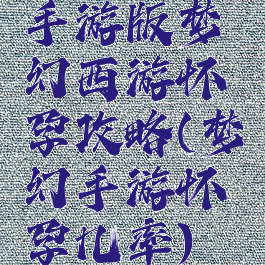 手游版梦
幻西游怀
孕攻略(梦
幻手游怀
孕几率)